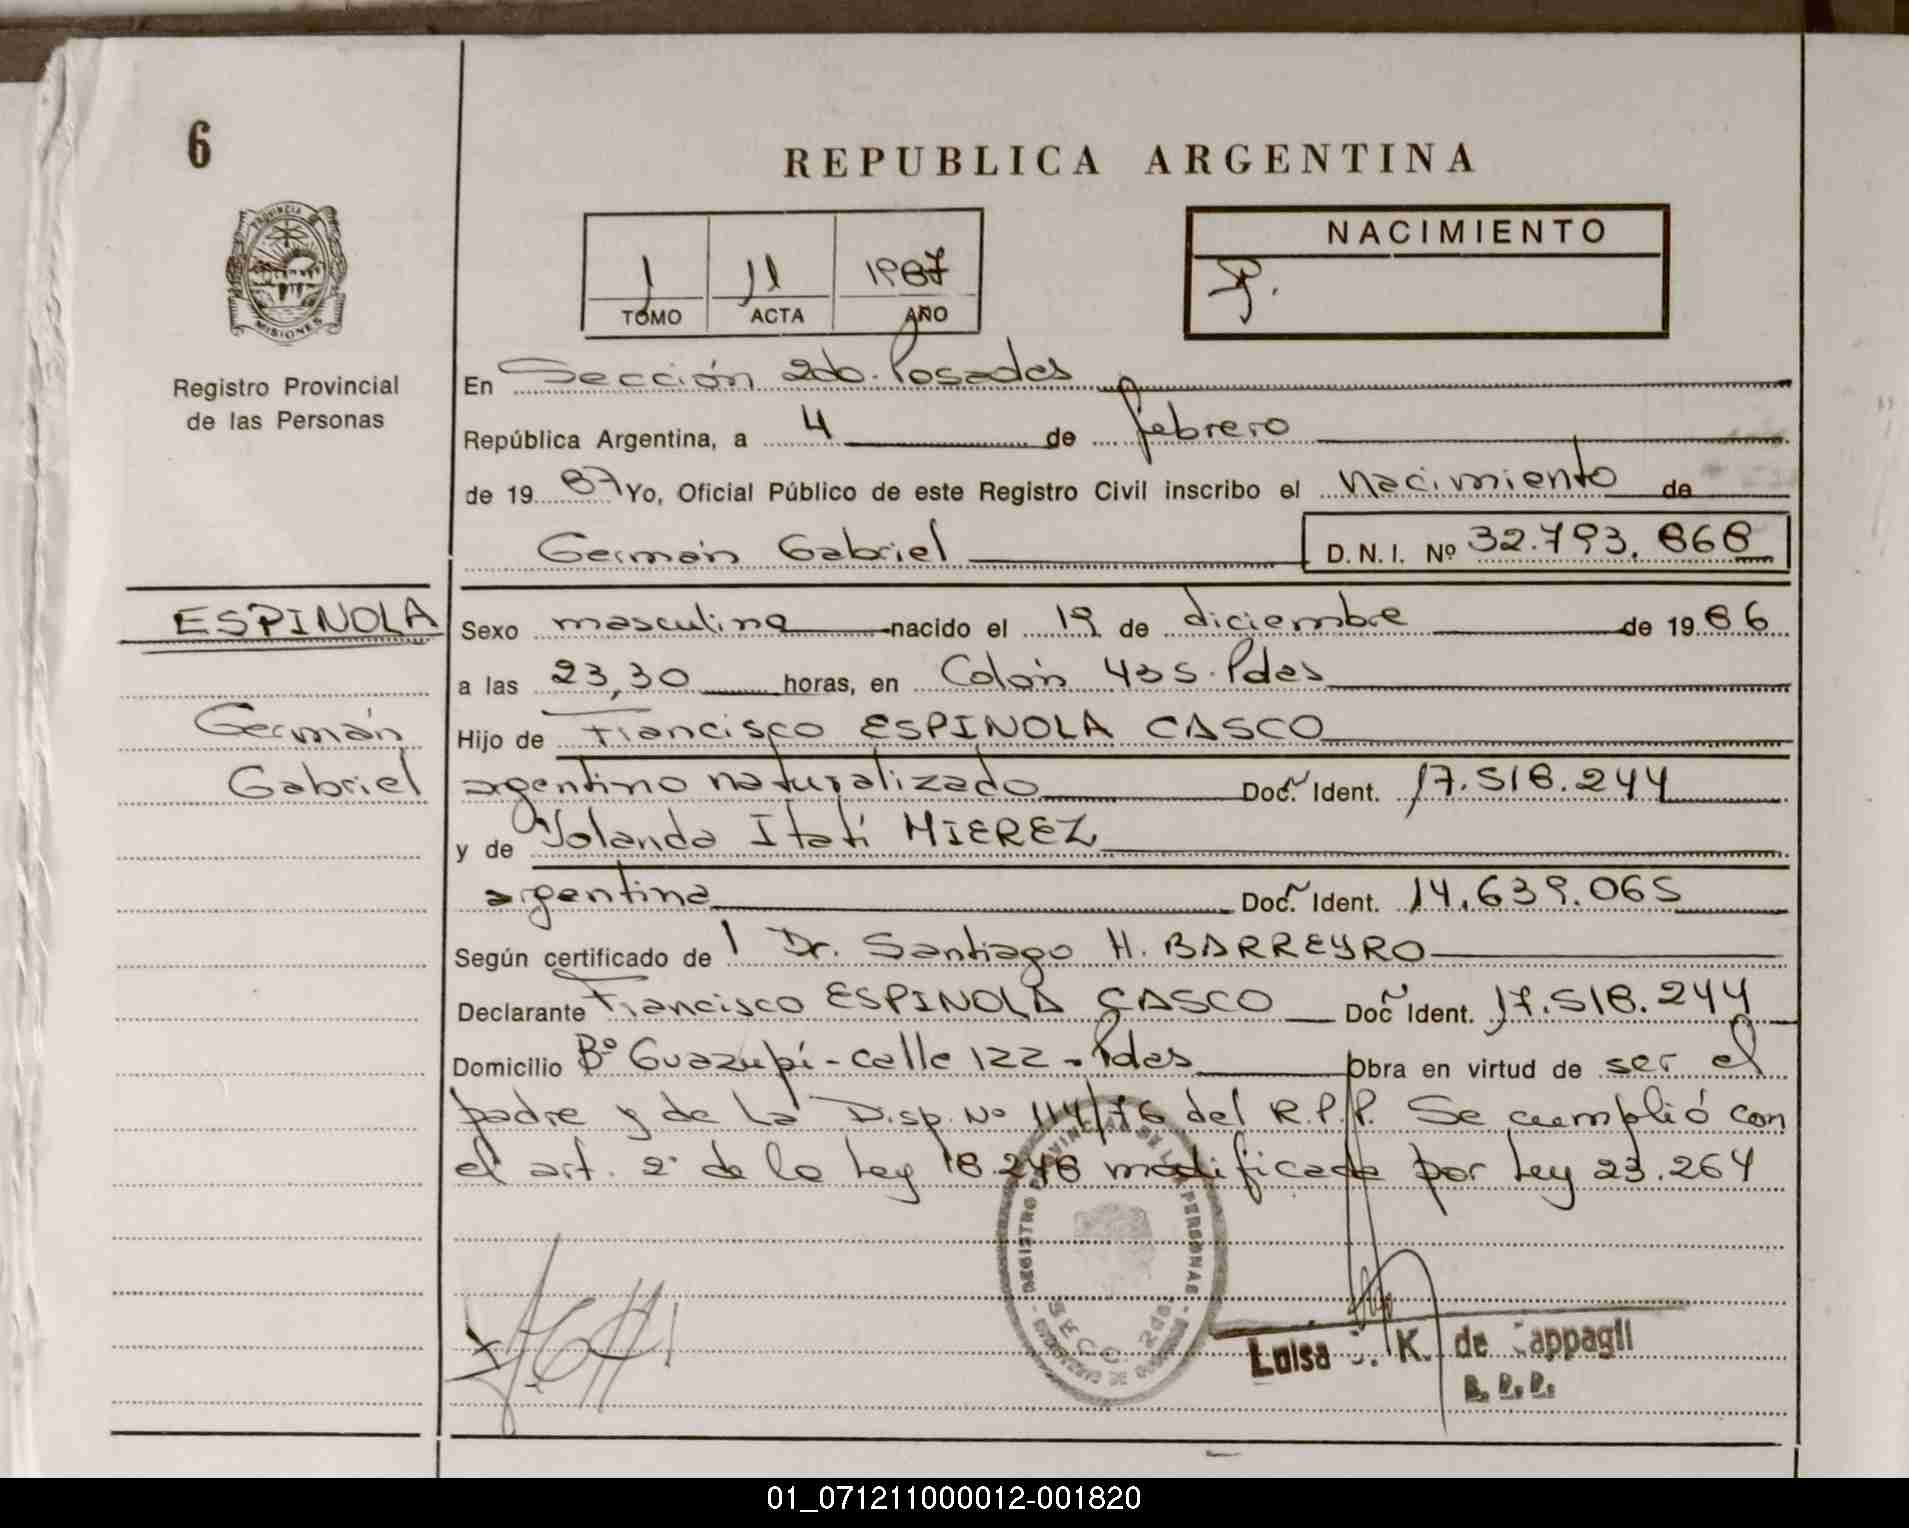 6
REPUBLICA ARGENTINA
PROVINCIA
MISIONES
NACIMIENTO
1 11 1987
TOMO ACTA AÑO
Registro Provincial
de las Personas
En Sección 2do. Posadas
República Argentina, a 4 de febrero
de 19 87 Yo, Oficial Público de este Registro Civil inscribo el Nacimiento de
Germán Gabriel D.N.I. Nº 32.793.868
ESPINOLA
Germán
Gabriel
Sexo masculino nacido el 19 de diciembre de 19 86
a las 23,30 horas, en Colón 435. Pdas
Hijo de Francisco ESPINOLA CASCO
argentino naturalizado Doc. Ident. 17.518.244
y de Yolanda Itatí MIEREZ
argentina Doc. Ident. 14.639.065
Según certificado de Dr. Santiago H. BARREYRO
Declarante Francisco ESPINOLA CASCO Doc Ident. 17.518.244
Domicilio Bº Guazupí - calle 122 - Pdas Obra en virtud de ser el
padre y de la Disp. Nº 114/76 del R.P.P. Se cumplió con
el art. 2º de la Ley 18.248 modificada por Ley 23.264
REGISTRO PROVINCIAL DE LAS PERSONAS
SECC. 2da.
Luisa K. de
01_071211000012-001820